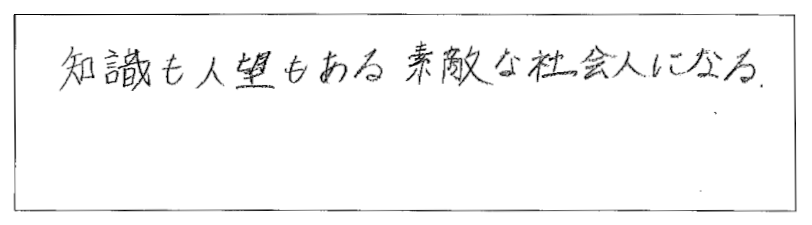 知識も人望もある素敵な社会人になる.